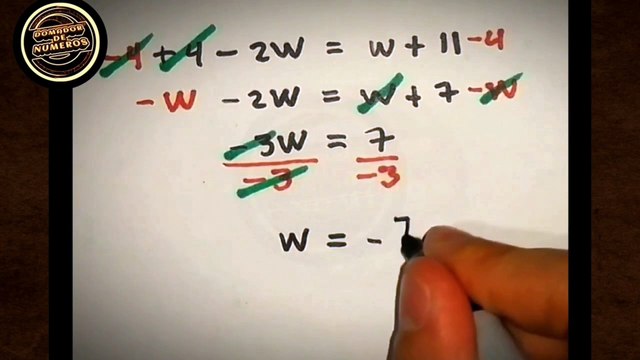 DOMADOR
DE
NÚMEROS
-4 + 4 - 2W = W + 11 - 4
-W - 2W = W + 7 - W
-3W = 7
-3 -3
W = - 7